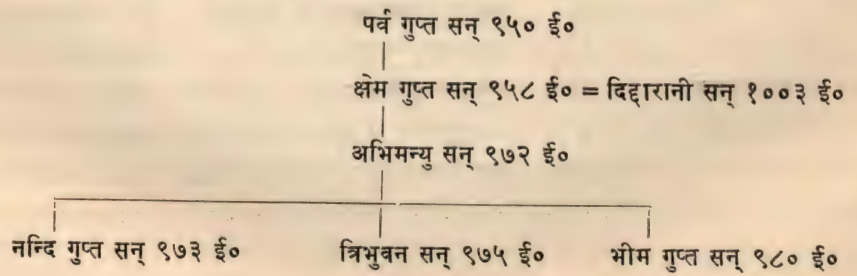 पर्व गुप्त सन् ९५० ई०
क्षेम गुप्त सन् ९५८ ई० = दिद्दारानी सन् १००३ ई०
अभिमन्यु सन् ९७२ ई०
नन्दि गुप्त सन् ९७३ ई० त्रिभुवन सन् ९७५ ई० भीम गुप्त सन् ९८० ई०